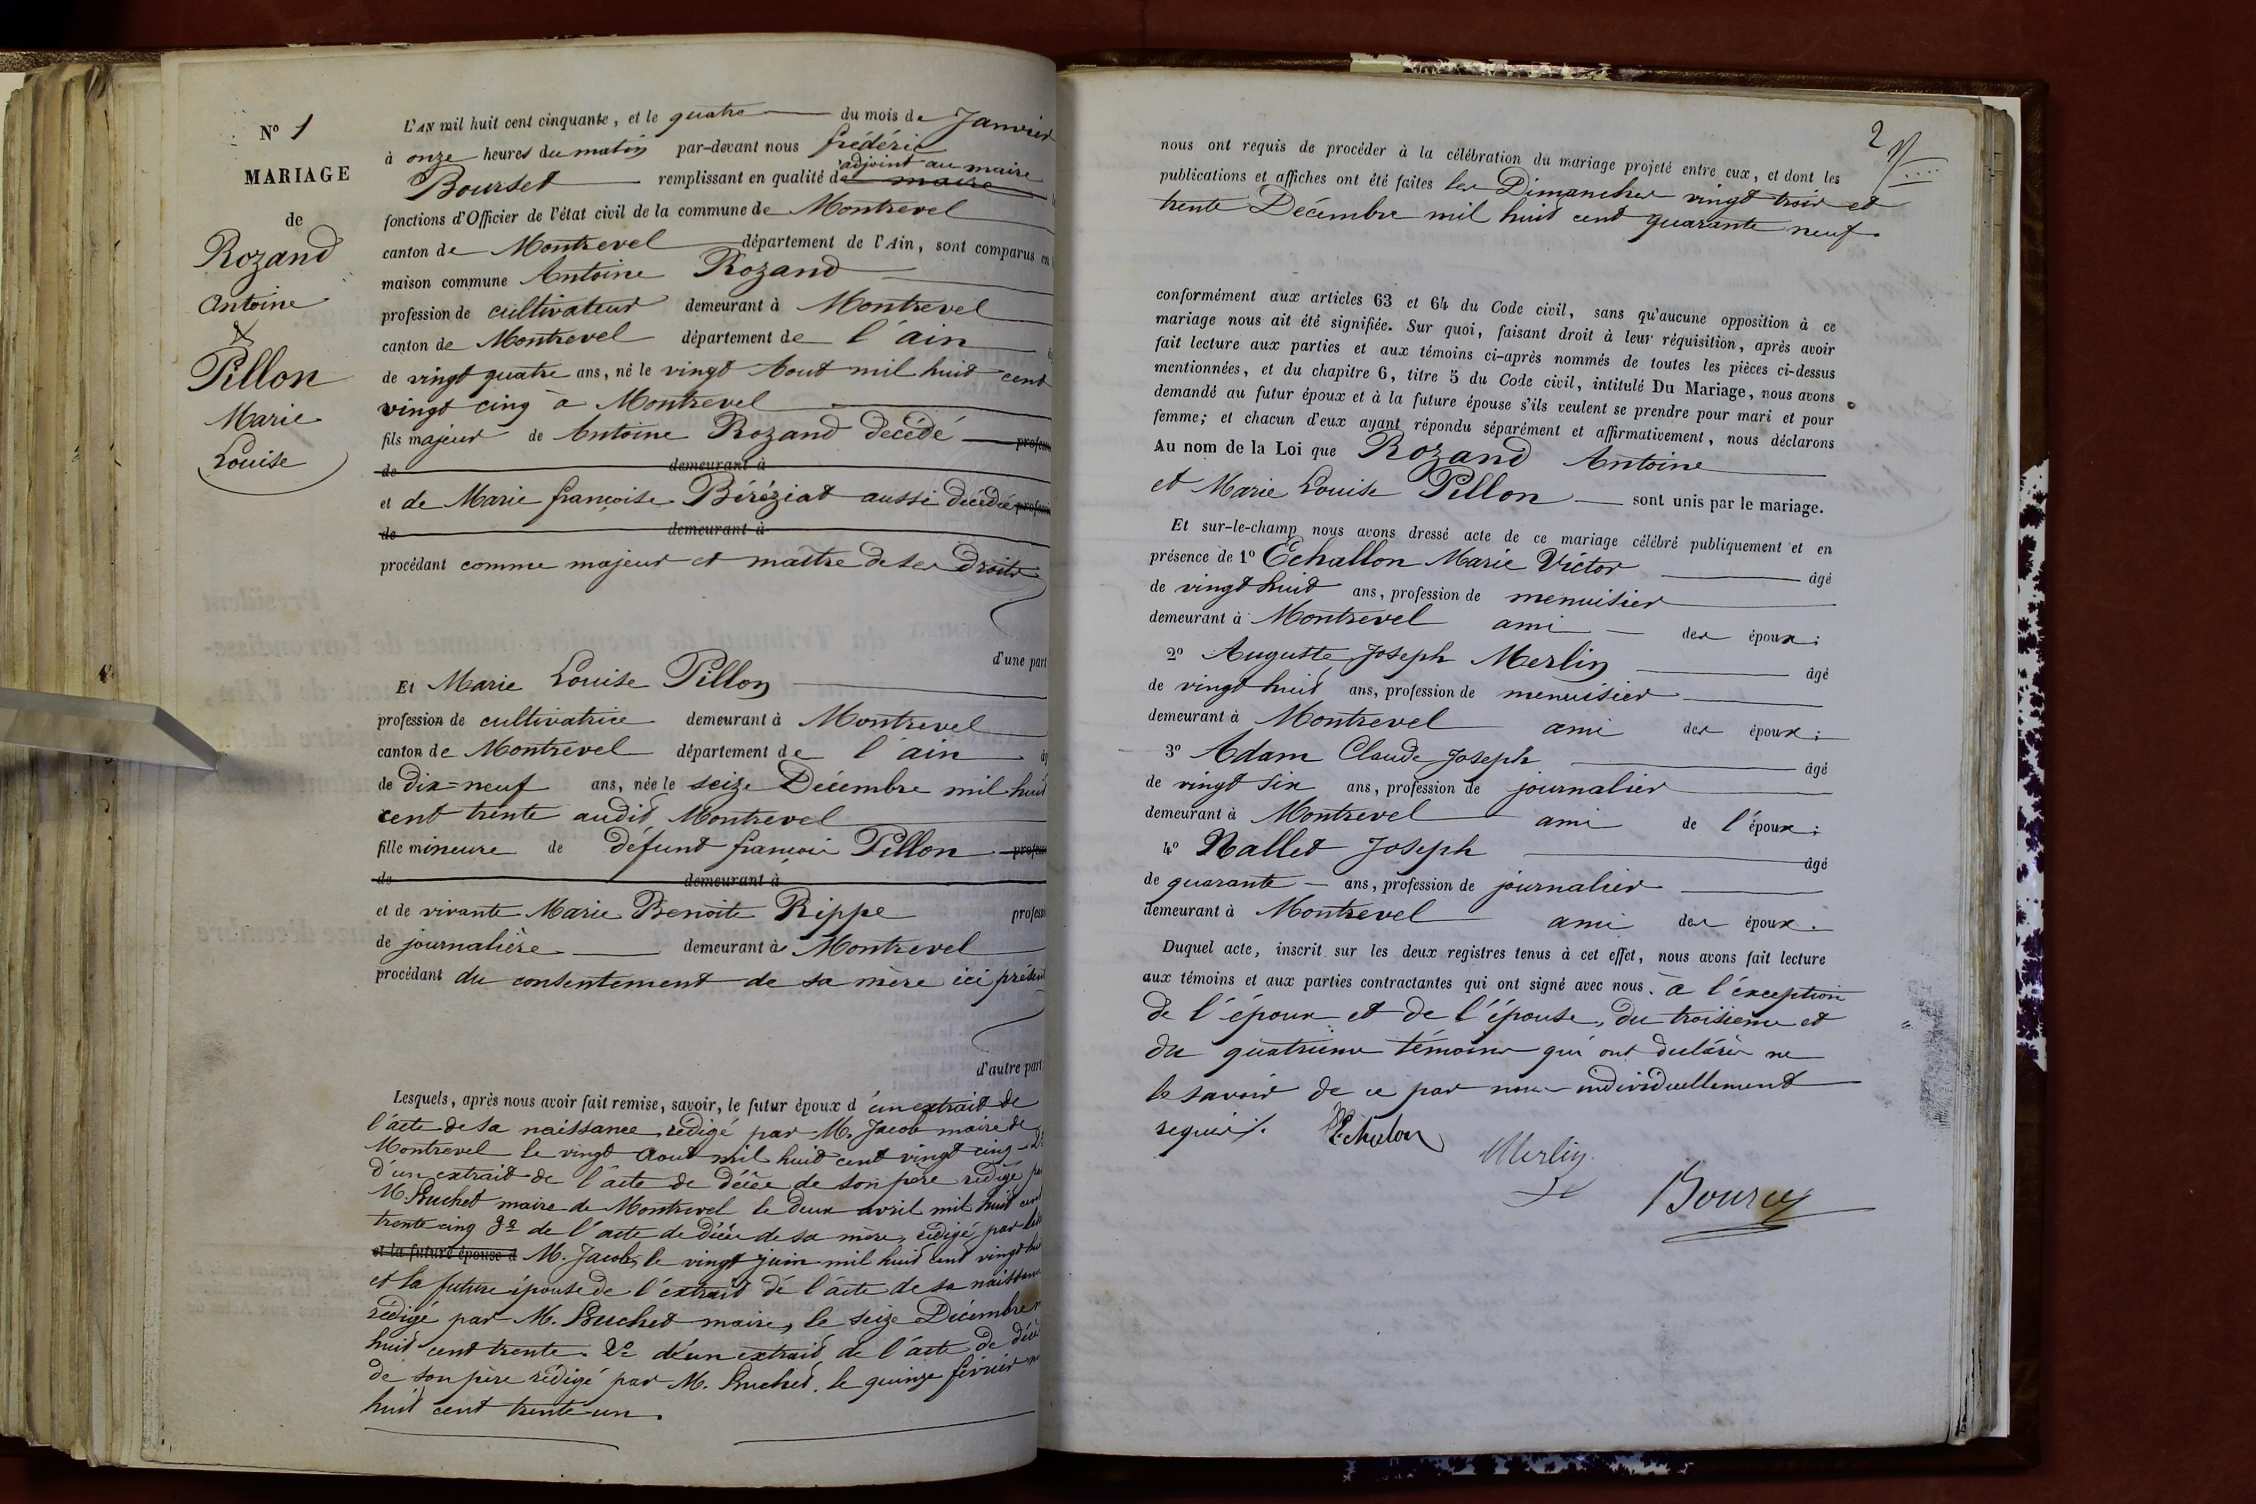 N° 1
MARIAGE
de
Rozand
Antoine
&
Pillon
Marie
Louise
L'AN mil huit cent cinquante, et le quatre du mois de Janvier
à onze heures du matin par-devant nous frédéric
adjoint au maire
Bourset remplissant en qualité de maire
fonctions d'Officier de l'état civil de la commune de Montrevel
canton de Montrevel département de l'Ain, sont comparus en
maison commune Antoine Rozand
profession de cultivateur demeurant à Montrevel
canton de Montrevel département de l'ain
de vingt quatre ans, né le vingt Aout mil huit cent
vingt cinq à Montrevel
fils majeur de Antoine Rozand décédé profess
de demeurant à
et de Marie françoise Béréziat aussi décédée profess
de demeurant à
procédant comme majeur et maître de ses droits
d'une part
Et Marie Louise Pillon
profession de cultivatrice demeurant à Montrevel
canton de Montrevel département de l'ain
de dix=neuf ans, née le seize Décembre mil huit
cent trente audit Montrevel
fille mineure de défunt françois Pillon profess
de demeurant à
et de vivante Marie Benoite Rippe profess
de journalière demeurant à Montrevel
procédant du consentement de sa mère ici présent
d'autre part
Lesquels, après nous avoir fait remise, savoir, le futur époux d'un extrait de
l'acte de sa naissance, rédigé par M. Jacob maire de
Montrevel le vingt Aout mil huit cent vingt cinq - 2°
d'un extrait de l'acte de décée de son père rédigé par
M. Buchet maire de Montrevel le deux avril mil huit cent
trente cinq 3° de l'acte de décée de sa mère, rédigé, par
et la future épouse d M. Jacob, le vingt juin mil huit cent vingt
et la future épouse de l'extrait de l'acte de sa naissance
rédigé par M. Buchet maire, le seize Décembre
huit cent trente. 2° d'un extrait de l'acte de décè
de son père rédigé par M. Buchet. le quinze février
huit cent trente-un.
2
nous ont requis de procéder à la célébration du mariage projeté entre eux, et dont les
publications et affiches ont été faites les Dimanches vingt trois et
trente Décembre mil huit cent quarante neuf.
conformément aux articles 63 et 64 du Code civil, sans qu'aucune opposition à ce
mariage nous ait été signifiée. Sur quoi, faisant droit à leur réquisition, après avoir
fait lecture aux parties et aux témoins ci-après nommés de toutes les pièces ci-dessus
mentionnées, et du chapitre 6, titre 5 du Code civil, intitulé Du Mariage, nous avons
demandé au futur époux et à la future épouse s'ils veulent se prendre pour mari et pour
femme; et chacun d'eux ayant répondu séparément et affirmativement, nous déclarons
Au nom de la Loi que Rozand Antoine
et Marie Louise Pillon sont unis par le mariage.
Et sur-le-champ nous avons dressé acte de ce mariage célébré publiquement et en
présence de 1° Echallon Marie Victor âgé
de vingt huit ans, profession de menuisier
demeurant à Montrevel ami des époux;
2° Auguste Joseph Merlin âgé
de vingt huit ans, profession de menuisier
demeurant à Montrevel ami des époux;
3° Adam Claude Joseph âgé
de vingt six ans, profession de journalier
demeurant à Montrevel ami de l'époux;
4° Nallet Joseph âgé
de quarante ans, profession de journalier
demeurant à Montrevel ami des époux.
Duquel acte, inscrit sur les deux registres tenus à cet effet, nous avons fait lecture
aux témoins et aux parties contractantes qui ont signé avec nous. à l'exception
de l'époux et de l'épouse, du troisième et
du quatrieme témoins qui ont déclarés ne
le savoir de ce par nous individuellement
requis ./.
Echalon
Merlin